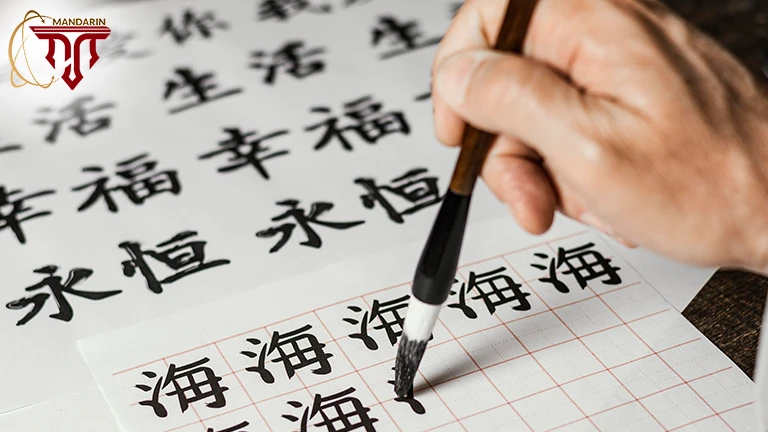 MANDARIN
你 我
活 生活 生
幸福 幸福
永恒 永恒
海 海 海 海 海
海